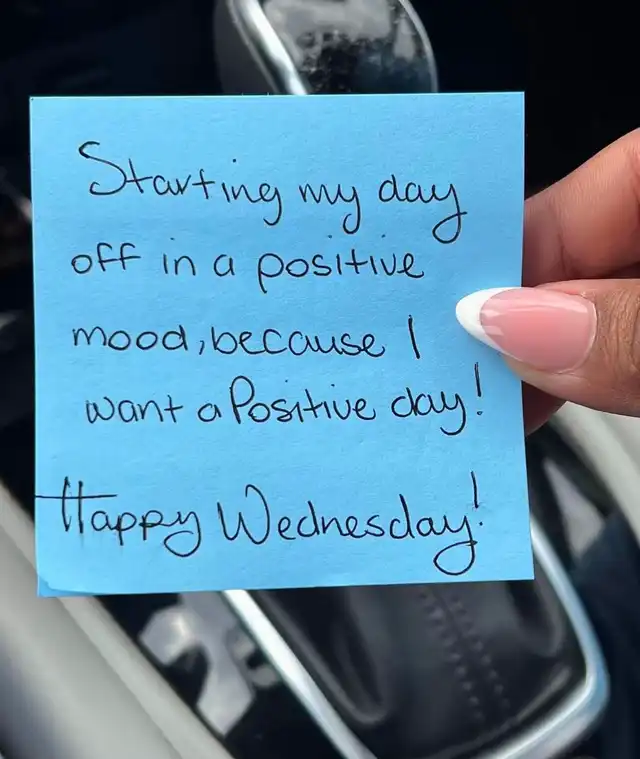 Starting my day
off in a positive
mood, because I
want a Positive day!
Happy Wednesday!